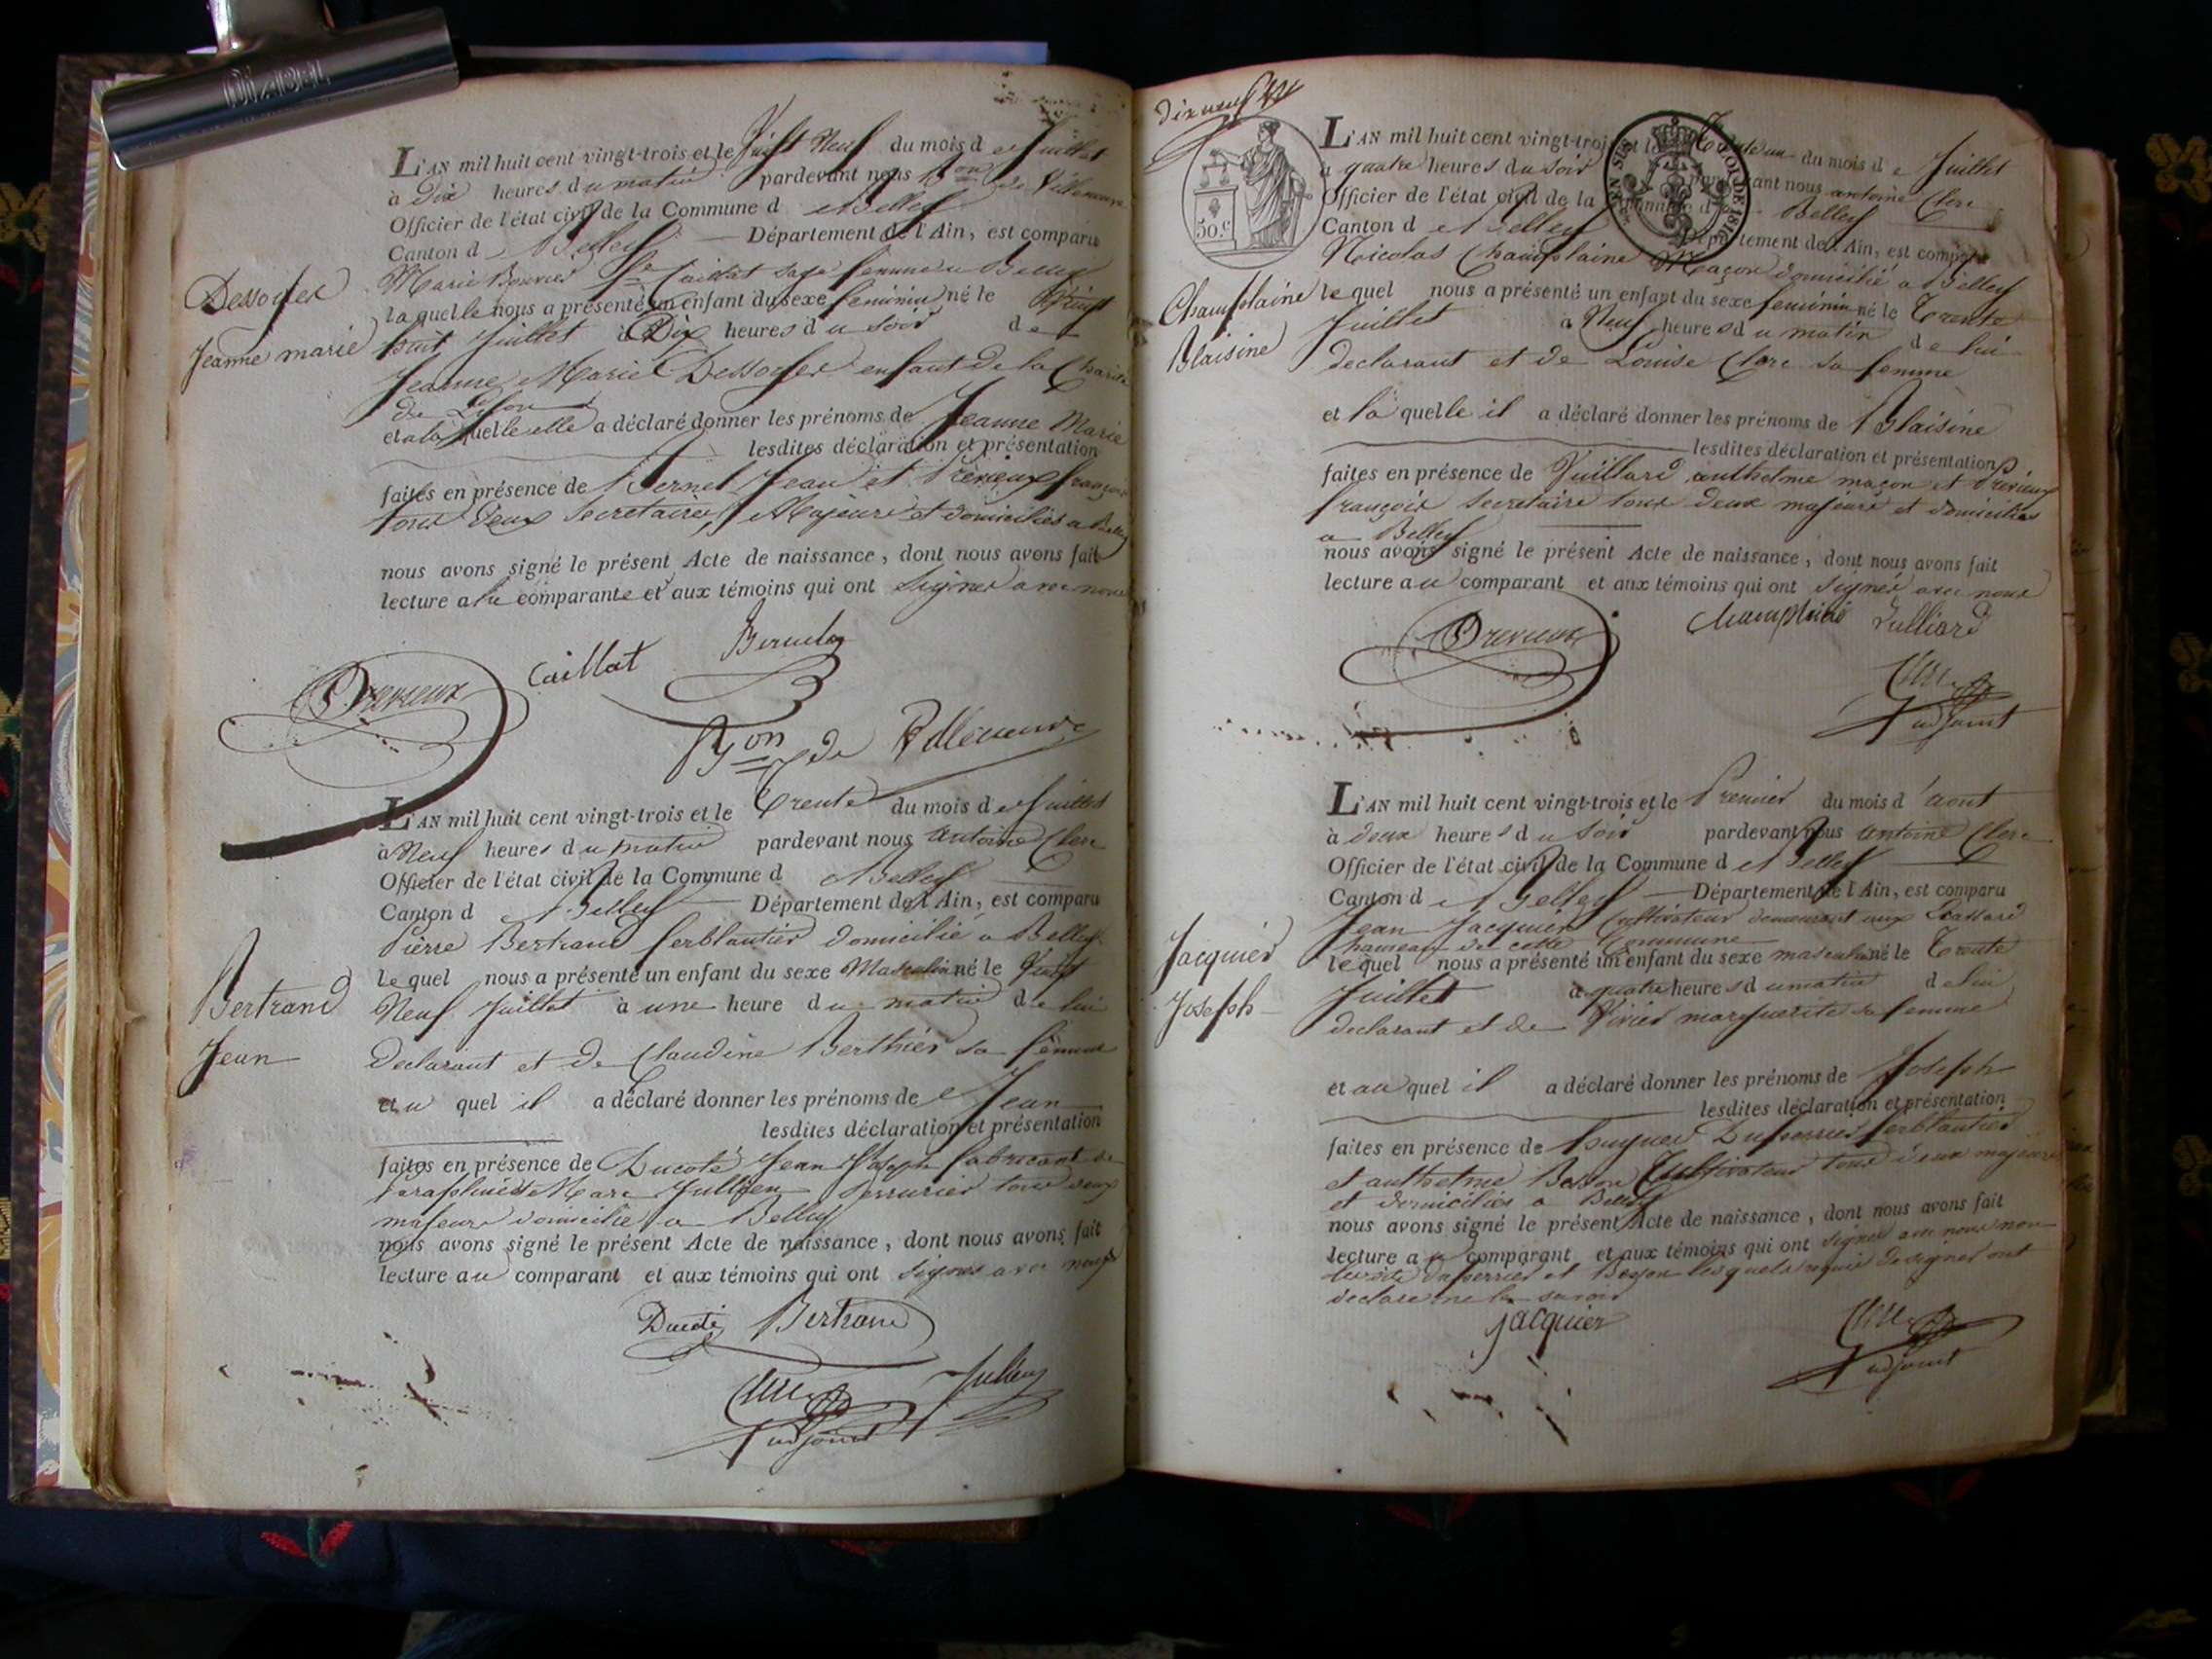 DIABEL
L'AN mil huit cent vingt-trois et le Vingt Neuf du mois de Juillet
à Dix heures du matin pardevant nous Bon de Villeneuve
Officier de l'état civil de la Commune de Belley
Canton de Belley Département de l'Ain, est comparu
Marie Bouvier fe Caillat sage femme a Belley
Dessoyer
laquelle nous a présenté un enfant du sexe feminin né le Vingt
Jeanne marie
huit Juillet à Dix heures du soir de
Jeanne Marie Dessoyer enfant de la Charité
de Lyon
et a la quelle elle a déclaré donner les prénoms de Jeanne Marie
lesdites déclaration et présentation
faites en présence de Bernel Jean et Prévieux françois
tous deux Secretaires, Majeurs et domiciliés a Belley
nous avons signé le présent Acte de naissance, dont nous avons fait
lecture a la comparante et aux témoins qui ont signés avec nous
Caillat
Bon de Villeneuve
L'AN mil huit cent vingt-trois et le Trente du mois de Juillet
à Neuf heures du matin pardevant nous antoine Clerc
Officier de l'état civil de la Commune de Belley
Canton de Belley Département de l'Ain, est comparu
Pierre Bertrand ferblantier domicilié a Belley
Bertrand
le quel nous a présenté un enfant du sexe Masculin né le Vingt
Neuf Juillet à une heure du matin de lui
Jean
declarant et de Claudine Berthier sa femme
et au quel il a déclaré donner les prénoms de Jean
lesdites déclaration et présentation
faites en présence de Ducoté Jean Joseph fabricant de
Paraplui et Marc Jullien serrurier tous deux
majeurs domicilié a Belley
nous avons signé le présent Acte de naissance, dont nous avons fait
lecture au comparant et aux témoins qui ont signés avec nous
Ducoté Bertrand
Clerc Jullien
adjoint
Dix neuf
50.c
EN SUS TIMBRE DE 1816
L'AN mil huit cent vingt-trois et le Trente un du mois de Juillet
à quatre heures du soir pardevant nous antoine Clerc
Officier de l'état civil de la Commune de Belley
Canton de Belley Département de l'Ain, est comparu
Nicolas Champlaine Maçon domicilié a Belley
Champlaine
le quel nous a présenté un enfant du sexe feminin né le Trente
Blaisine
Juillet à Neuf heures du matin de lui
declarant et de Louise Clerc sa femme
et la quelle il a déclaré donner les prénoms de Blaisine
lesdites déclaration et présentation
faites en présence de Juilliard anthelme maçon et Prévieux
françois secretaire tous deux majeurs et domiciliés
a Belley
nous avons signé le présent Acte de naissance, dont nous avons fait
lecture au comparant et aux témoins qui ont signés avec nous
Clerc
adjoint
L'AN mil huit cent vingt-trois et le Premier du mois d'aout
à deux heures du soir pardevant nous antoine Clerc
Officier de l'état civil de la Commune de Belley
Canton de Belley Département de l'Ain, est comparu
Jean Jacquier Cultivateur demeurant aux
hameau de cette Commune
Jacquier
le quel nous a présenté un enfant du sexe masculin né le Trente
Joseph
Juillet à quatre heures du matin de lui
declarant et de Vivier marguerite sa femme
et au quel il a déclaré donner les prénoms de Joseph
lesdites déclaration et présentation
faites en présence de hugues Duperrier ferblantier
et anthelme Besson Cultivateur tous deux majeurs
et domiciliés a Belley
nous avons signé le présent Acte de naissance, dont nous avons fait
lecture au comparant et aux témoins qui ont signés avec nous non
Duperrier et Besson lesquels requis de signer ont
declaré ne le savoir
jacquier
Clerc
adjoint